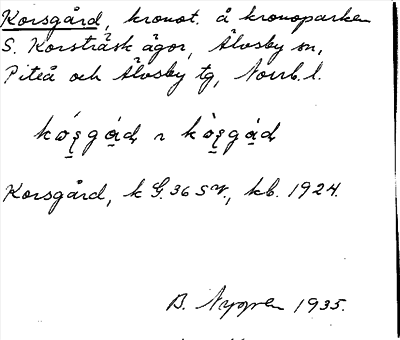 Korsgård, kronot. å kronoparken
S. Korsträsk ägor, Älvsby sn,
Piteå och Älvsby tg, Norrb. l.
Korsgård, k G. 36 SV., kb. 1924.
B. Nygren 1935.